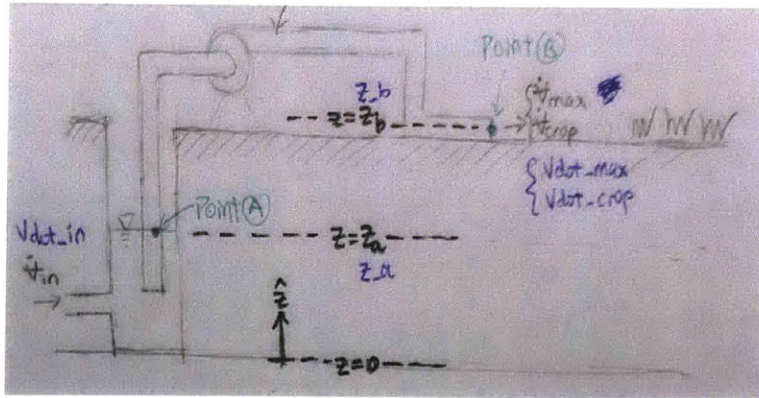 Point Ⓑ
z_b
z=z_b
{ V̇max
V̇crop
{ Vdot_max
Vdot_crop
Point Ⓐ
Vdot_in
V̇in
z=z_a
z_a
ẑ
z=0